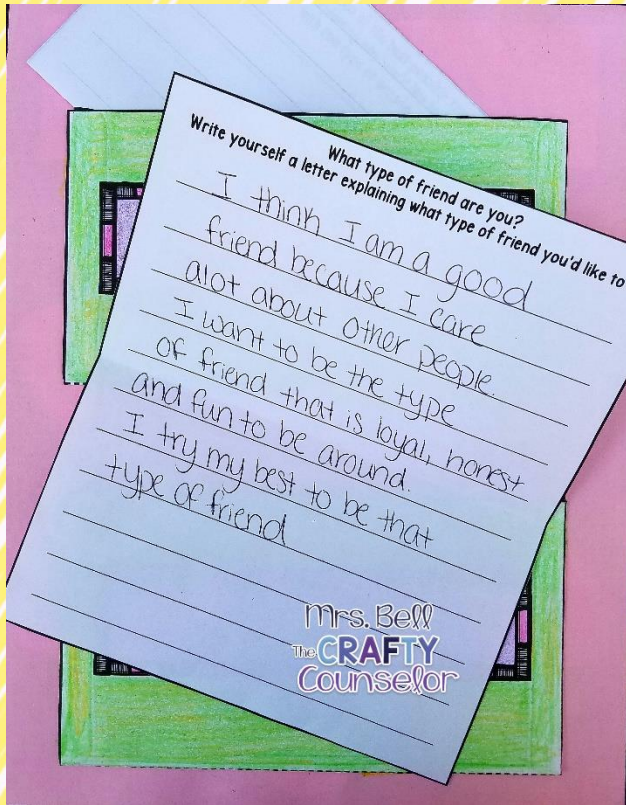 What type of friend are you?
Write yourself a letter explaining what type of friend you'd like to
I think I am a good
friend because I care
alot about other people.
I want to be the type
of friend that is loyal, honest
and fun to be around.
I try my best to be that
type of friend
Mrs. Bell
The CRAFTY
Counselor